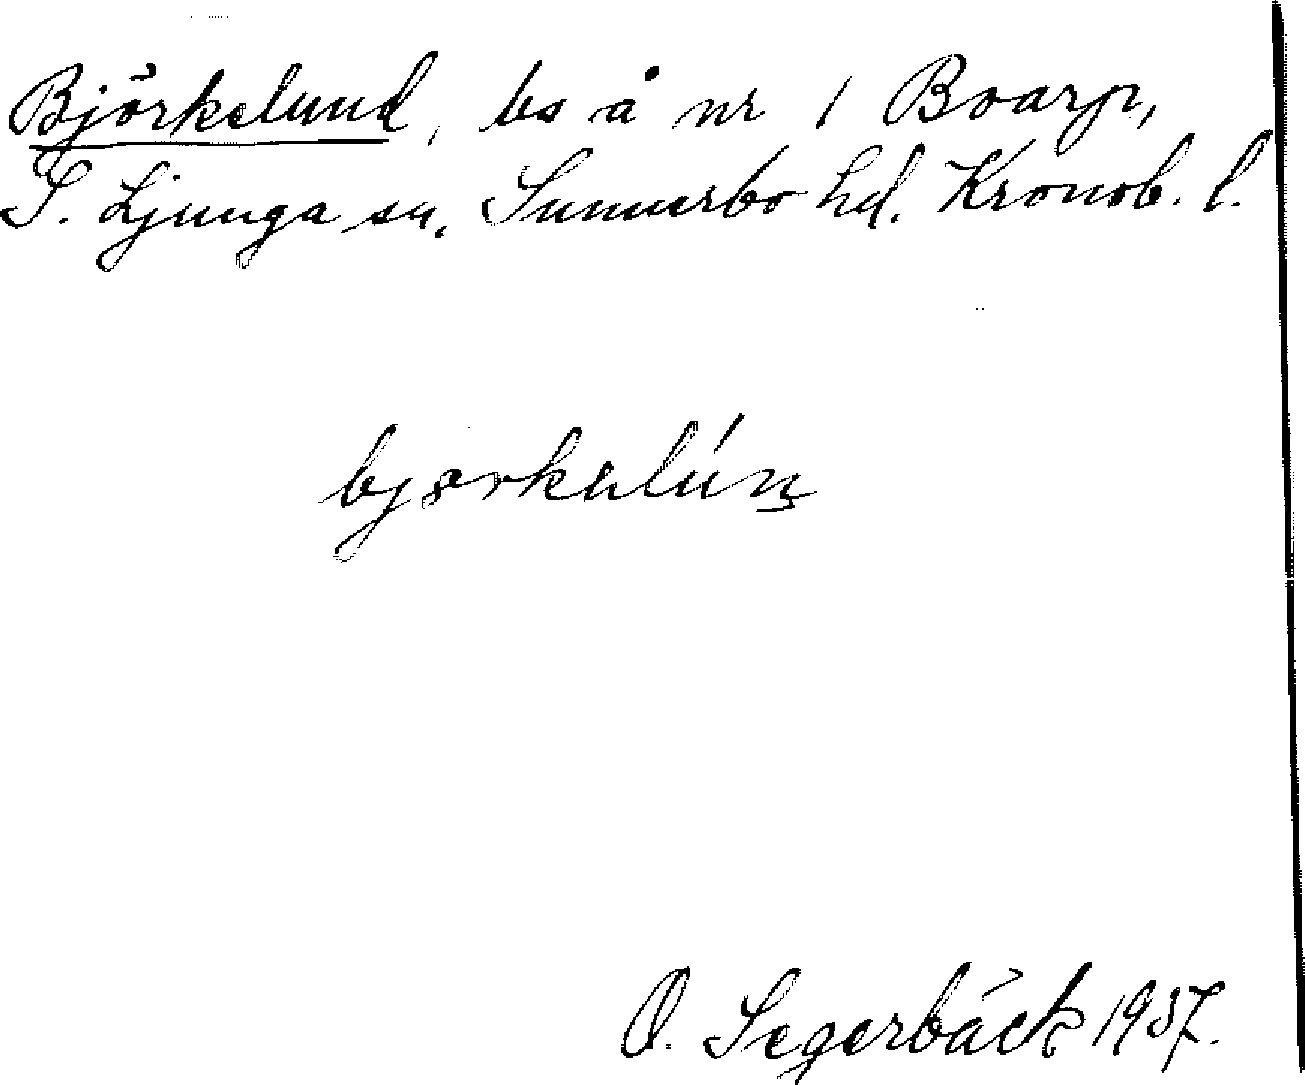 Björkelund, bs å nr 1 Boarp,
S. Ljunga sn. Sunnerbo hd. Kronob. l.
bjørkəlún
O. Segerbäck 1937.